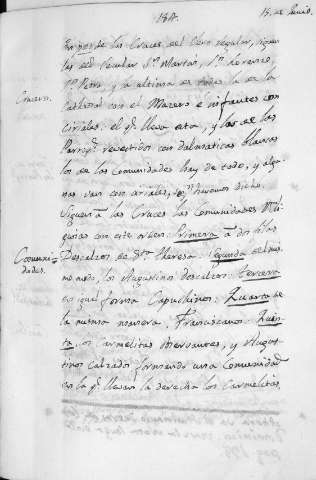 184.
15. de Junio.
En pos de las Cruces del Clero regular, siguen
las del secular Sn. Martin, Sn. Lorenzo,
Sn. Pedro, y la ultima de todas la de la
Cruces.
Catedral con el Macero e infantes con
Ciriales: el qe. lleva esta, y los de las
Parroqs. revestidos con dalmaticas blancas
los de las Comunidades hay de todo, y algu-
nas van con ciriales, como hemos dicho.
Siguen à las Cruces las comunidades Reli-
giosas con este orden. Primera à dos hilos
Comuni-
dades.
Descalzos de Sta. Theresa: Segunda del mis-
mo modo, los Agustinos descalzos: Tercera
es igual forma Capuchinos: Quarta de
la misma manera, Franciscanos: Quin-
ta, los Carmelitas Observantes, y Agus-
tinos Calzados formando una Comunidad
en la qe. llevan la derecha los Carmelitas